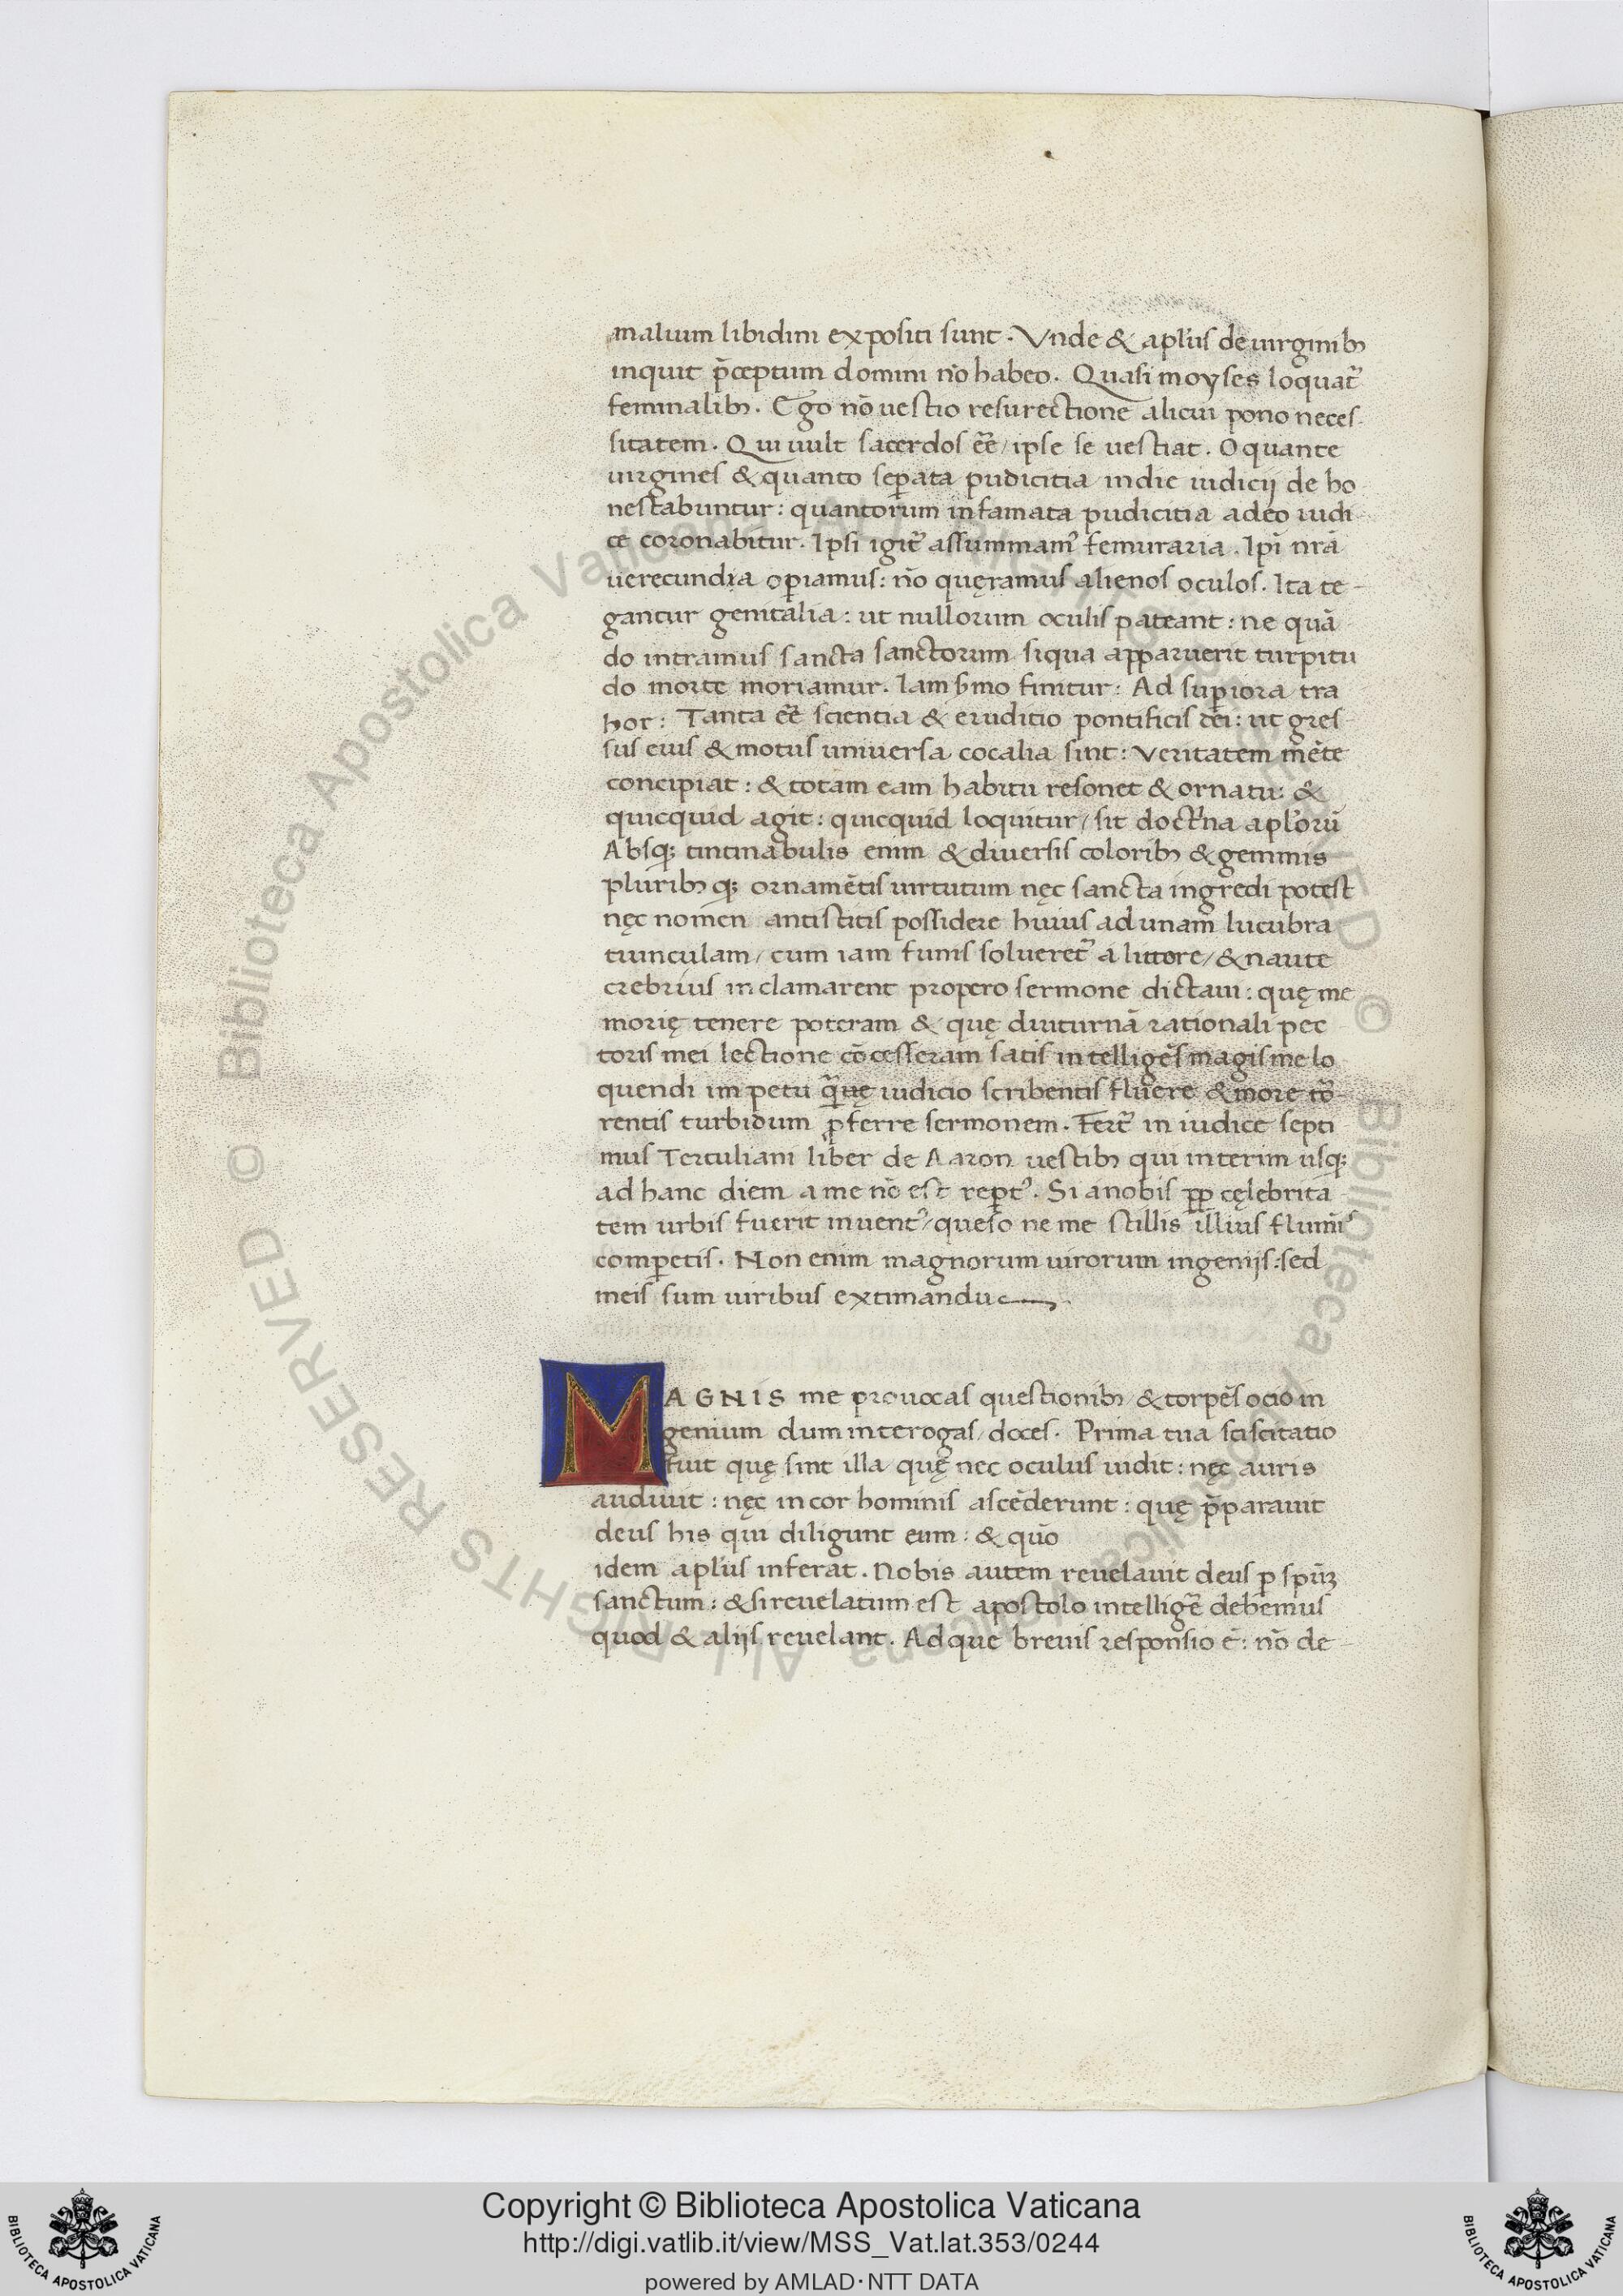 malium libidini expositi sunt. Vnde & apl'us de uirginib;
inquit p̄ceptum domini nō habeo. Quasi moyses loquat᷑
feminalib;. Ego nō uestio resurectione alicui pono neces-
sitatem. Qui uult sacerdos eē̄/ ipse se uestiat. O quante
uirgines & quanto sep̱ata pudicitia indie iudicij de ho
nestabuntur: quantorum infamata pudicitia adeo iudi
ce coronabitur. Ipsi igit᷑ assummam᷒ femuraria. Ip̄i nr̄a
uerecundia op̱iamus: nō quęramus alienos oculos. Ita te-
gantur genitalia: ut nullorum oculis pateant: ne quā
do intramus sancta sanctorum siqua apparuerit turpitu
do morte moriamur. Iam s̄mo finitur: Ad sup̱iora tra
hor: Tanta eē̄ scientia & eruditio pontificis dei: ut gres
sus eius & motus uniuersa cocalia sint: Veritatem mēte
concipiat: & totam eam habitu resonet & ornatu: &
quicquid agit: quicquid loquitur/ sit doct͛na apl'orū
Absq; tintinabulis enim & diuersis colorib; & gemmis
plurib; q; ornamētis uirtutum nęc sancta ingredi potest
nęc nomen antistitis possidere huius ad unam lucubra
tiunculam/ cum iam funis solueret᷑ a littore/ & naute
crebrius inclamarent propero sermone dictaui: quę me
morię tenere poteram & quę diuturnā rationali pec
toris mei lectione cōcesseram satis intelligēs magis me lo
quendi impetu iudicio scribentis fluere & more tō-
rentis turbidum p̱ferre sermonem. Fert᷑ in iudice septi
mus Tertuliani liber de Aaron uestib; qui interim usq;
ad hanc diem a me nō est rep̱t᷒. Si anobis p̱p̱ cęlebrita
tem urbis fuerit inuent᷒/ queso ne me stillis illius flumīs
comp̱etis. Non enim magnorum uirorum ingenijs: sed
meis sum uiribus extimandu
MAGNIS me prouocas questionib; & torpēs ocio in
genium dum interogas/ doces. Prima tua sciscitatio
fuit quę sint illa quę nec oculus uidit: nęc auris
audiuit: nęc in cor hominis ascēderunt: quę p̄parauit
deus his qui diligunt eum: & quō
idem apl'us inferat. Nobis autem reuelauit deus p̱ spūꝫ
sanctum: & si reuelatum est apostolo intelligēr debemus
quod & alijs reuelant. Ad que breuis responsio ē: nō de-
Copyright © Biblioteca Apostolica Vaticana
http://digi.vatlib.it/view/MSS_Vat.lat.353/0244
powered by AMLAD·NTT DATA
BIBLIOTECA APOSTOLICA VATICANA
BIBLIOTECA APOSTOLICA VATICANA
© Biblioteca Apostolica Vaticana ALL RIGHTS RESERVED